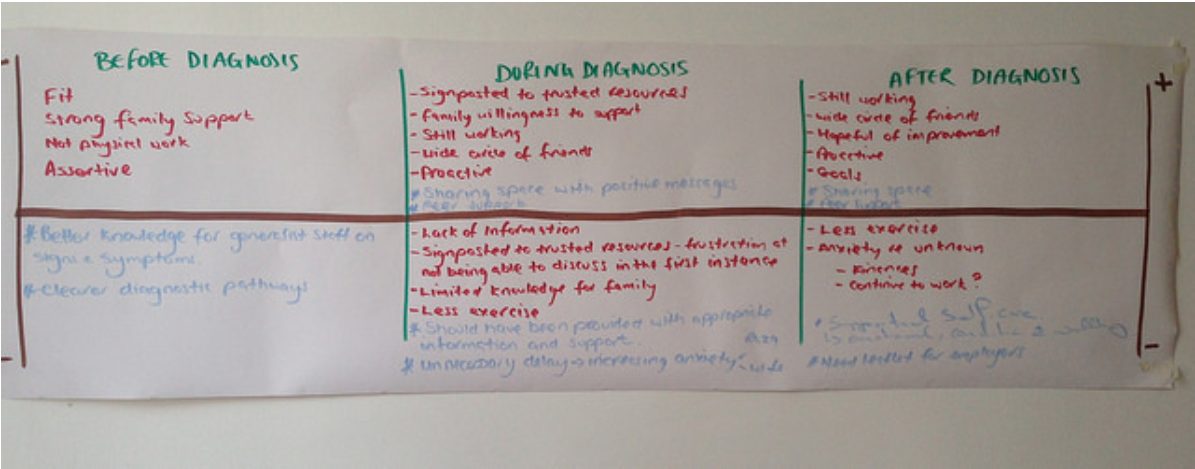 BEFORE DIAGNOSIS
Fit
Strong family Support
Not physical work
Assertive
* Better knowledge for generalist staff on
signs & symptoms.
* Clearer diagnostic pathways
DURING DIAGNOSIS
- Signposted to trusted resources
- Family willingness to support
- Still working
- wide circle of friends
- Proactive
* Sharing space with positive messages
* Peer support
- Lack of Information
- Signposted to trusted resources - frustration at
not being able to discuss in the first instance
- Limited knowledge for family
- Less exercise
* Should have been provided with appropriate
information and support.
* Unnecessary delay → increasing anxiety
AFTER DIAGNOSIS
- Still working
- wide circle of friends
- Hopeful of improvement
- Proactive
- Goals
* Sharing space
* Peer support
- Less exercise
- Anxiety of unknown
- Finances
- Continue to work?
* Self care
* Need leaflet for employers
+
-